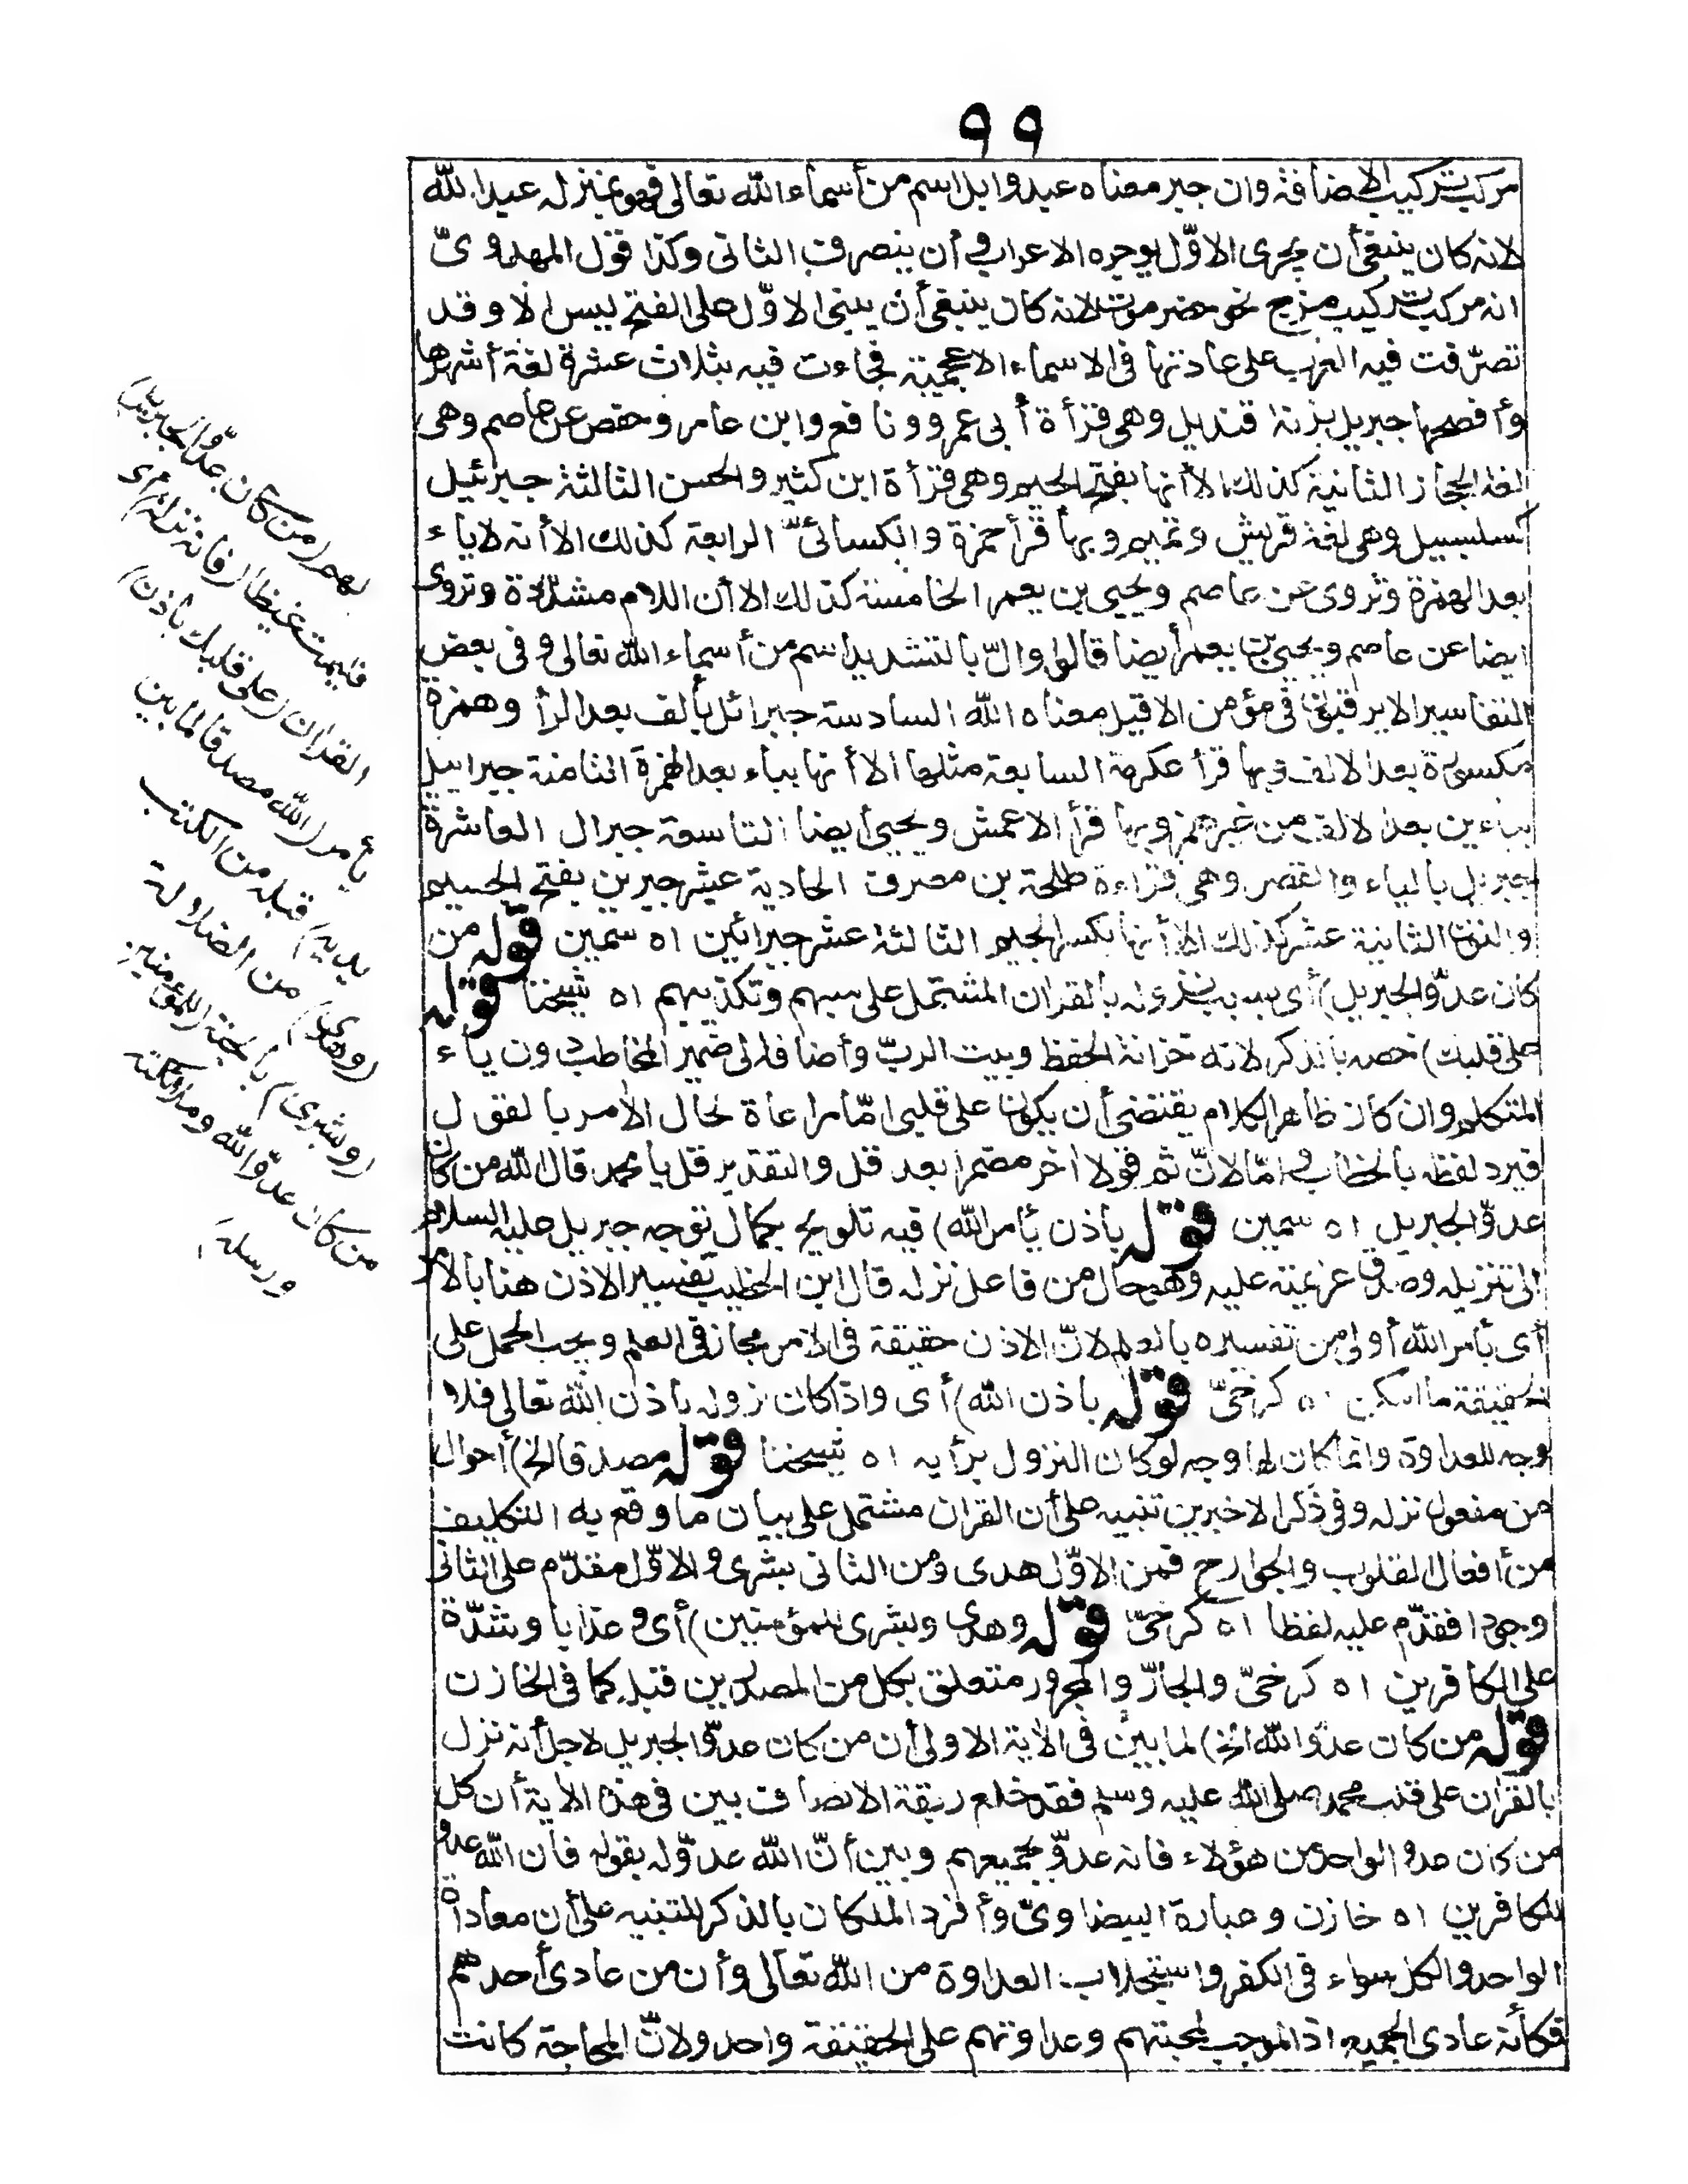 ٩٩
مركب تركيب الاضافة وان جبر معناه عبد وايل اسم من أسماء الله تعالى فهو بمنزلة عبد الله
لانه كان ينبغى أن يجرى الاوّل بوجوه الاعراب وأن ينصرف الثانى وكذا قول المهدوىّ
انه مركب تركيب مزج نحو حضرموت لانه كان ينبغى أن يبنى الاوّل على الفتح ليس الا وقد
تصرّفت فيه العرب على عادتها فى الاسماء الاعجمية فجاءت فيه بثلاث عشرة لغة أشهرها
وأفصحها جبريل بزنة قنديل وهى قرأة أبى عمرو ونافع وابن عامر وحفص عن عاصم وهى
لغة الحجاز الثانية كذلك الا أنها بفتح الجيم وهى قرأة ابن كثير والحسن الثالثة جبرئيل
كسلسبيل وهى لغة قريش وتميم وبها قرأ حمزة والكسائىّ الرابعة كذلك الا أنه لا ياء
بعد الهمزة وتروى عن عاصم ويحيى بن يعمر الخامسة كذلك الا أن اللام مشدّدة وتروى
ايضا عن عاصم ويحيى بن يعمر أيضا قالوا والّ بالتشديد اسم من أسماء الله تعالى وفى بعض
التفاسير لا يرقبون فى مؤمن الا قيل معناه الله السادسة جبرائل بألف بعد الرأ وهمزة
مكسورة بعد الالف وبها قرأ عكرمة السابعة مثلها الا أنها بياء بعد الهمزة الثامنة جبراييل
بياءين بعد الالف من غير همز وبها قرأ الاعمش ويحيى أيضا التاسعة جبرال العاشرة
جبريل بالياء والقصر وهى قراءة طلحة بن مصرف الحادية عشر جبرين بفتح الجسيم
والنون الثانية عشر كذلك الا أنها بكسر الجيم الثالثة عشر جبرائين اه سمين قوله من
كان عدوّا لجبريل) أى بسبب نزوله بالقران المشتمل على سبهم وتكذيبهم اه شيخنا قوله
على قلبك) خصه بالذكر لانه خزانة الحفظ وبيت الربّ وأضافه الى ضمير المخاطب دون ياء
المتكلم وان كان ظاهر الكلام يقتضى أن يكون على قلبى امّا مراعاة لحال الأمر بالقول
فيرد لفظه بالخطاب وامّا لانّ ثم قولا اخر مضمرا بعد قل والتقدير قل يا محمد قال الله من كان
عدوّا لجبريل اه سمين قوله باذن بأمر الله) فيه تلويح بكمال توجه جبريل عليه السلام
الى تنزيله وصدق عزيمته عليه وهو حال من فاعل نزله قال ابن الخطيب تفسير الاذن هنا بالامر
أى بأمر الله أولى من تفسيره بالعلم لانّ الاذن حقيقة فى الامر مجاز فى العلم ويجب الحمل على
الحقيقة ما امكن اه كرخىّ قوله باذن الله) أى واذا كان نزوله باذن الله تعالى فلا
وجه للعداوة وانما كان لها وجه لو كان النزول برأيه اه شيخنا قوله مصدقا الخ) أحوال
من مفعول نزله وفى ذكر الاخيرين تنبيه على أن القران مشتمل على بيان ما وقع به التكليف
من أفعال القلوب والجوارح فمن الاوّل هدى ومن الثانى بشرى والاوّل مقدّم على الثانى
وجودا فقدّم عليه لفظا اه كرخىّ قوله وهدى وبشرى للمؤمنين) أى وعذابا وشدّة
على الكافرين اه كرخىّ والجارّ والمجرور متعلق بكل من المصدرين قبله كما فى الخازن
قوله من كان عدوّا لله الخ) لما بين فى الأية الاولى أن من كان عدوّا لجبريل لاجل أنه نزل
بالقران على قلب محمد صلى الله عليه وسلم فقد خلع ربقة الانصاف بين فى هذه الأية أن كل
من كان عدوا لواحد من هؤلاء فانه عدوّ لجميعهم وبين أنّ الله عدوّ له بقوله فان الله عدو
للكافرين اه خازن وعبارة البيضاوىّ وأفرد الملكان بالذكر للتنبيه على أن معاداة
الواحد والكل سواء فى الكفر واستجلاب العداوة من الله تعالى وأن من عادى أحدهم
فكأنه عادى الجميع اذ الموجب لمحبتهم وعداوتهم على الحقيقة واحد ولانّ المحاجة كانت
لهم (من كان عدوّا لجبريل)
فليمت غيظا (فانه نزله) أى
القران (على قلبك باذن)
بأمر (الله مصدقا لما بين
يديه) قبله من الكتب
(وهدى) من الضلالة
(وبشرى) بالجنة (للمؤمنين
من كان عدوّا لله وملائكته
ورسله)